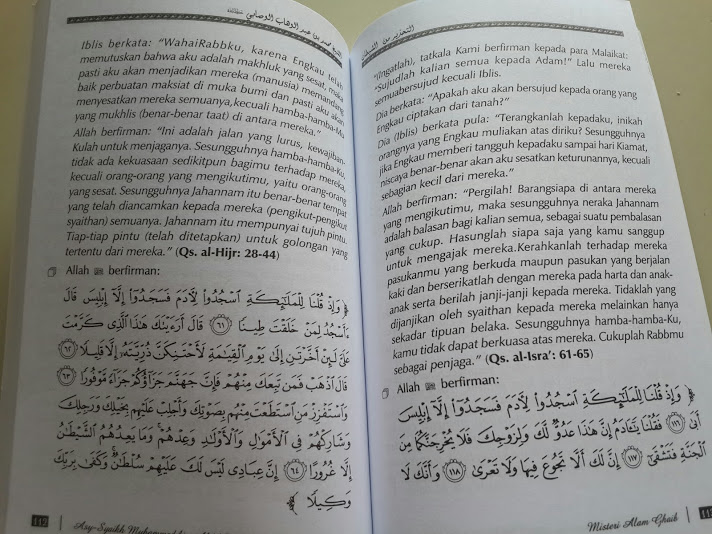 الشيخ محمد بن عبد الوهاب الوصابي
Iblis berkata: "WahaiRabbku, karena Engkau telah
memutuskan bahwa aku adalah makhluk yang sesat, maka
pasti aku akan menjadikan mereka (manusia) memandang
baik perbuatan maksiat di muka bumi dan pasti aku akan
menyesatkan mereka semuanya,kecuali hamba-hamba-Mu
yang mukhlis (benar-benar taat) di antara mereka."
Allah berfirman: "Ini adalah jalan yang lurus, kewajiban-
Kulah untuk menjaganya. Sesungguhnya hamba-hamba-Ku,
tidak ada kekuasaan sedikitpun bagimu terhadap mereka,
kecuali orang-orang yang mengikutimu, yaitu orang-orang
yang sesat. Sesungguhnya Jahannam itu benar-benar tempat
yang telah diancamkan kepada mereka (pengikut-pengikut
syaithan) semuanya. Jahannam itu mempunyai tujuh pintu.
Tiap-tiap pintu (telah ditetapkan) untuk golongan yang
tertentu dari mereka." (Qs. al-Hijr: 28-44)
Allah ﷻ berfirman:
﴿ وَإِذْ قُلْنَا لِلْمَلَٰٓئِكَةِ ٱسْجُدُوا۟ لِـَٔادَمَ فَسَجَدُوٓا۟ إِلَّآ إِبْلِيسَ قَالَ
ءَأَسْجُدُ لِمَنْ خَلَقْتَ طِينًا ٦١ قَالَ أَرَءَيْتَكَ هَٰذَا ٱلَّذِى كَرَّمْتَ
عَلَىَّ لَئِنْ أَخَّرْتَنِ إِلَىٰ يَوْمِ ٱلْقِيَٰمَةِ لَأَحْتَنِكَنَّ ذُرِّيَّتَهُۥٓ إِلَّا قَلِيلًا ٦٢
قَالَ ٱذْهَبْ فَمَن تَبِعَكَ مِنْهُمْ فَإِنَّ جَهَنَّمَ جَزَآؤُكُمْ جَزَآءً مَّوْفُورًا ٦٣
وَٱسْتَفْزِزْ مَنِ ٱسْتَطَعْتَ مِنْهُم بِصَوْتِكَ وَأَجْلِبْ عَلَيْهِم بِخَيْلِكَ وَرَجِلِكَ
وَشَارِكْهُمْ فِى ٱلْأَمْوَٰلِ وَٱلْأَوْلَٰدِ وَعِدْهُمْ وَمَا يَعِدُهُمُ ٱلشَّيْطَٰنُ
إِلَّا غُرُورًا ٦٤ إِنَّ عِبَادِى لَيْسَ لَكَ عَلَيْهِمْ سُلْطَٰنٌ وَكَفَىٰ بِرَبِّكَ
وَكِيلًا ﴾
112 | Asy-Syaikh Muhammad
التحذير من الفتنة
"(Ingatlah), tatkala Kami berfirman kepada para Malaikat:
"Sujudlah kalian semua kepada Adam!" Lalu mereka
semuabersujud kecuali Iblis.
Dia berkata: "Apakah aku akan bersujud kepada orang yang
Engkau ciptakan dari tanah?"
Dia (Iblis) berkata pula: "Terangkanlah kepadaku, inikah
orangnya yang Engkau muliakan atas diriku? Sesungguhnya
jika Engkau memberi tangguh kepadaku sampai hari Kiamat,
niscaya benar-benar akan aku sesatkan keturunannya, kecuali
sebagian kecil dari mereka."
Allah berfirman: "Pergilah! Barangsiapa di antara mereka
yang mengikutimu, maka sesungguhnya neraka Jahannam
adalah balasan bagi kalian semua, sebagai suatu pembalasan
yang cukup. Hasunglah siapa saja yang kamu sanggup
untuk mengajak mereka.Kerahkanlah terhadap mereka
pasukanmu yang berkuda maupun pasukan yang berjalan
kaki dan berserikatlah dengan mereka pada harta dan anak-
anak serta berilah janji-janji kepada mereka. Tidaklah yang
dijanjikan oleh syaithan kepada mereka melainkan hanya
sekadar tipuan belaka. Sesungguhnya hamba-hamba-Ku,
kamu tidak dapat berkuasa atas mereka. Cukuplah Rabbmu
sebagai penjaga." (Qs. al-Isra': 61-65)
Allah ﷻ berfirman:
﴿ وَإِذْ قُلْنَا لِلْمَلَٰٓئِكَةِ ٱسْجُدُوا۟ لِـَٔادَمَ فَسَجَدُوٓا۟ إِلَّآ إِبْلِيسَ
أَبَىٰ ١١٦ فَقُلْنَا يَٰٓـَٔادَمُ إِنَّ هَٰذَا عَدُوٌّ لَّكَ وَلِزَوْجِكَ فَلَا يُخْرِجَنَّكُمَا مِنَ
ٱلْجَنَّةِ فَتَشْقَىٰٓ ١١٧ إِنَّ لَكَ أَلَّا تَجُوعَ فِيهَا وَلَا تَعْرَىٰ ١١٨ وَأَنَّكَ لَا
Misteri Alam Ghaib | 113